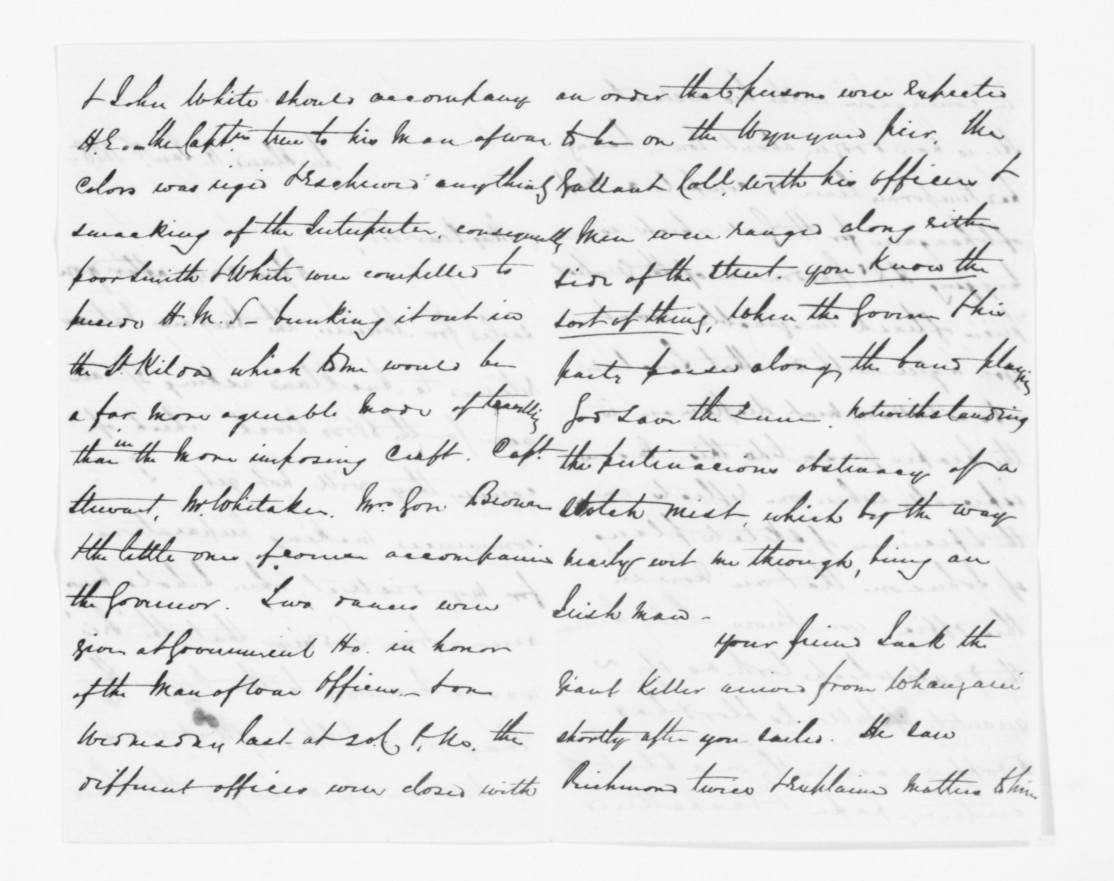 & John White should accompany
H.E. on the Captn true to his Man of war
colors was rigid & eschewed anything
smacking of the Interpreter, consequently
poor Smith & White were compelled to
precede H.M.S. bunking it out in
the St Kilda which to me would be
a far more agreeable mode of travelling
than in the more imposing craft. Capt.
Stewart, Mr Whitaker, Mrs Gore Brown
& the little ones of course accompanied
the Governor. Two dances were
given at Government Ho. in honor
of the Man of War Officers & on
Wednesday last at 2 o'C P.M. the
different offices were closed with
an order that persons were expected
to be on the Wynyard pier, the
Gallant Coll. with his officers &
Men were ranged along either
side of the street. you know the
sort of thing, When the Govern & his
party passed along, the band playing
God save the Queen. Notwithstanding
the pertinacious obstinacy of a
Scotch mist, which by the way
nearly wet me through, being an
Irish man.
Your friend Jack the
Giant Killer arrived from Whangarei
shortly after you sailed. He saw
Richmond twice & explained matters to him